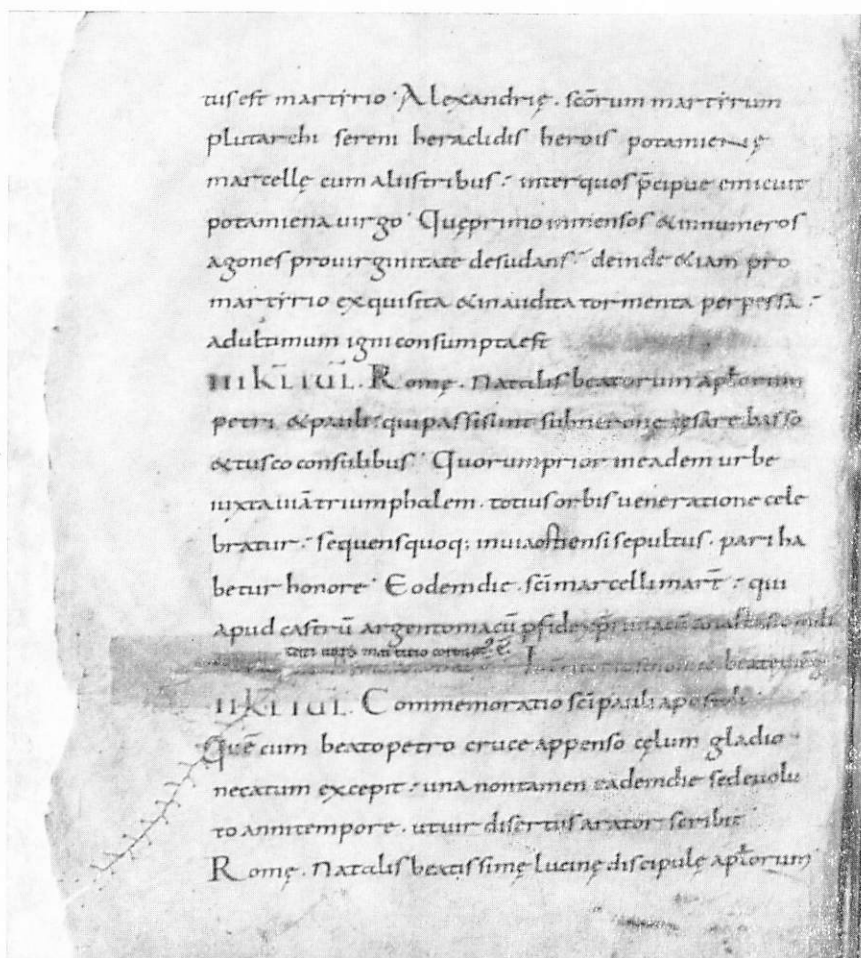 tus est martẏrio · Alexandrię . scōrum martẏrum
plutarchi sereni heraclidis herois potamienę
marcellę cum aliis tribus : inter quos p̄cipue emicuit
potamiena uirgo · Quę primo inmensos & innumeros
agones pro uirginitate desudans : deinde & iam pro
martẏrio exquisita & inaudita tormenta perpessa :
ad ultimum igni consumpta est
III KL̄ IUL̄ . Romę . Natalis beatorum apl̄orum
petri & pauli : qui passi sunt sub nerone cęsare basso
& tusco consulibus · Quorum prior in eadem urbe
iuxta uiā triumphalem . totius orbis ueneratione cele
bratur : sequens quoq; in uia ostiensi sepultus . pari ha
betur honore · Eodem die . sc̄i marcelli mar̄t : qui
apud castrū argentomacū p fide xp̄i una cū anastasio mili
martirio ē
beatę
II KL̄ IUL̄ . Commemoratio sc̄i pauli apostoli
Quē cum beato petro cruce appenso cęlum gladio
necatum excepit : una non tamen eadem die sed euolu
to anni tempore . ut uir disertus arator scribit
Romę . Natalis beatissimę lucinę discipulę apl̄orum